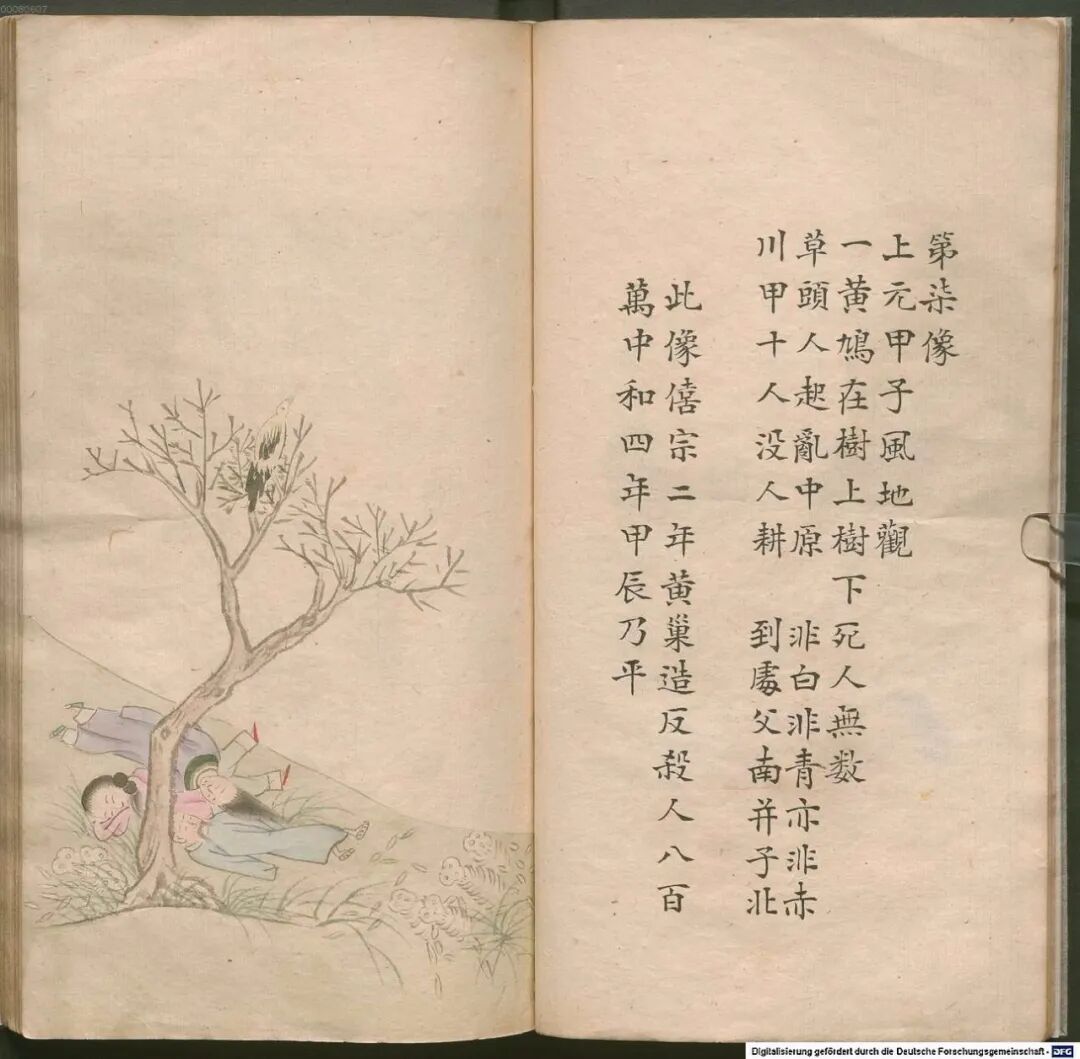 第柒像
上元甲子風地觀
一黃鳩在樹上樹下死人無数
草頭人起亂中原 非白非青亦非赤
川甲十人没人耕 到處父南并子北
此像僖宗二年黄巢造反殺人八百
萬中和四年甲辰乃平
00080607
Digitalisierung gefördert durch die Deutsche Forschungsgemeinschaft - DFG